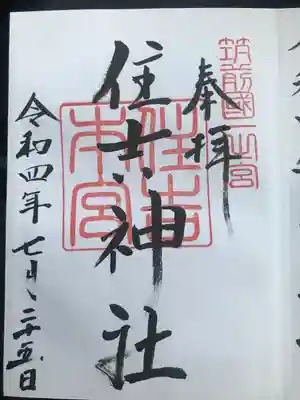 奉拝
筑前國一之宮
住吉神社
住吉本宮
令和四年七月二五日